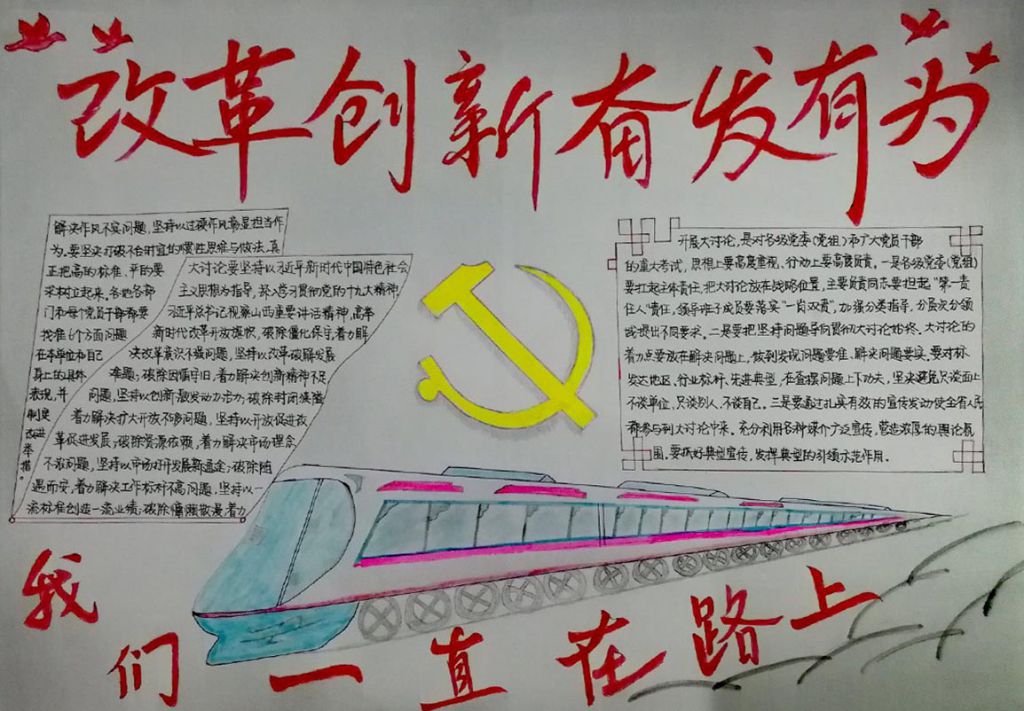 改革创新奋发有为
解决作风不实问题，坚持以过硬作风彰显担当作
为。要坚决打破不合时宜的惯性思维与做法，真
正把高的标准、平的要
求树立起来。各地各部
门和每个党员干部都要
找准6个方面问题
在本单位和自己
身上的具体
表现，并
制定
改进
举措。
大讨论要坚持以习近平新时代中国特色社会
主义思想为指导，深入学习贯彻党的十九大精神，
习近平总书记视察山西重要讲话精神，高举
新时代改革开放旗帜，破除僵化保守，着力解
决改革意识不强问题，坚持以改革破解发展
难题；破除因循守旧，着力解决创新精神不足
问题，坚持以创新激发动力活力；破除封闭狭隘
着力解决扩大开放不够问题，坚持以开放促进改
革促进发展；破除资源依赖，着力解决市场理念
不浓问题，坚持以市场打开发展新通途；破除随
遇而安，着力解决工作标杆不高问题，坚持以一
流标准创造一流业绩；破除慵懒散漫着力
开展大讨论，是对各级党委(党组)和广大党员干部
的重大考试，思想上要高度重视、行动上要高度负责。一是各级党委(党组)
要扛起主体责任，把大讨论放在战略位置，主要负责同志要担起“第一责
任人”责任，领导班子成员要落实“一岗双责”，加强分类指导，分层次分领
域提出不同要求。二是要把坚持问题导向贯彻大讨论始终。大讨论的
着力点要放在解决问题上，做到发现问题要准、解决问题要实。要对标
发达地区、行业标杆、先进典型，在查摆问题上下功夫，坚决避免只谈面上
不谈单位，只谈别人、不谈自己。三是要通过扎实有效的宣传发动使全省人民
都参与到大讨论中来。充分利用各种媒介广泛宣传，营造浓厚的舆论氛
围。要抓好典型宣传，发挥典型的引领示范作用。
我们一直在路上